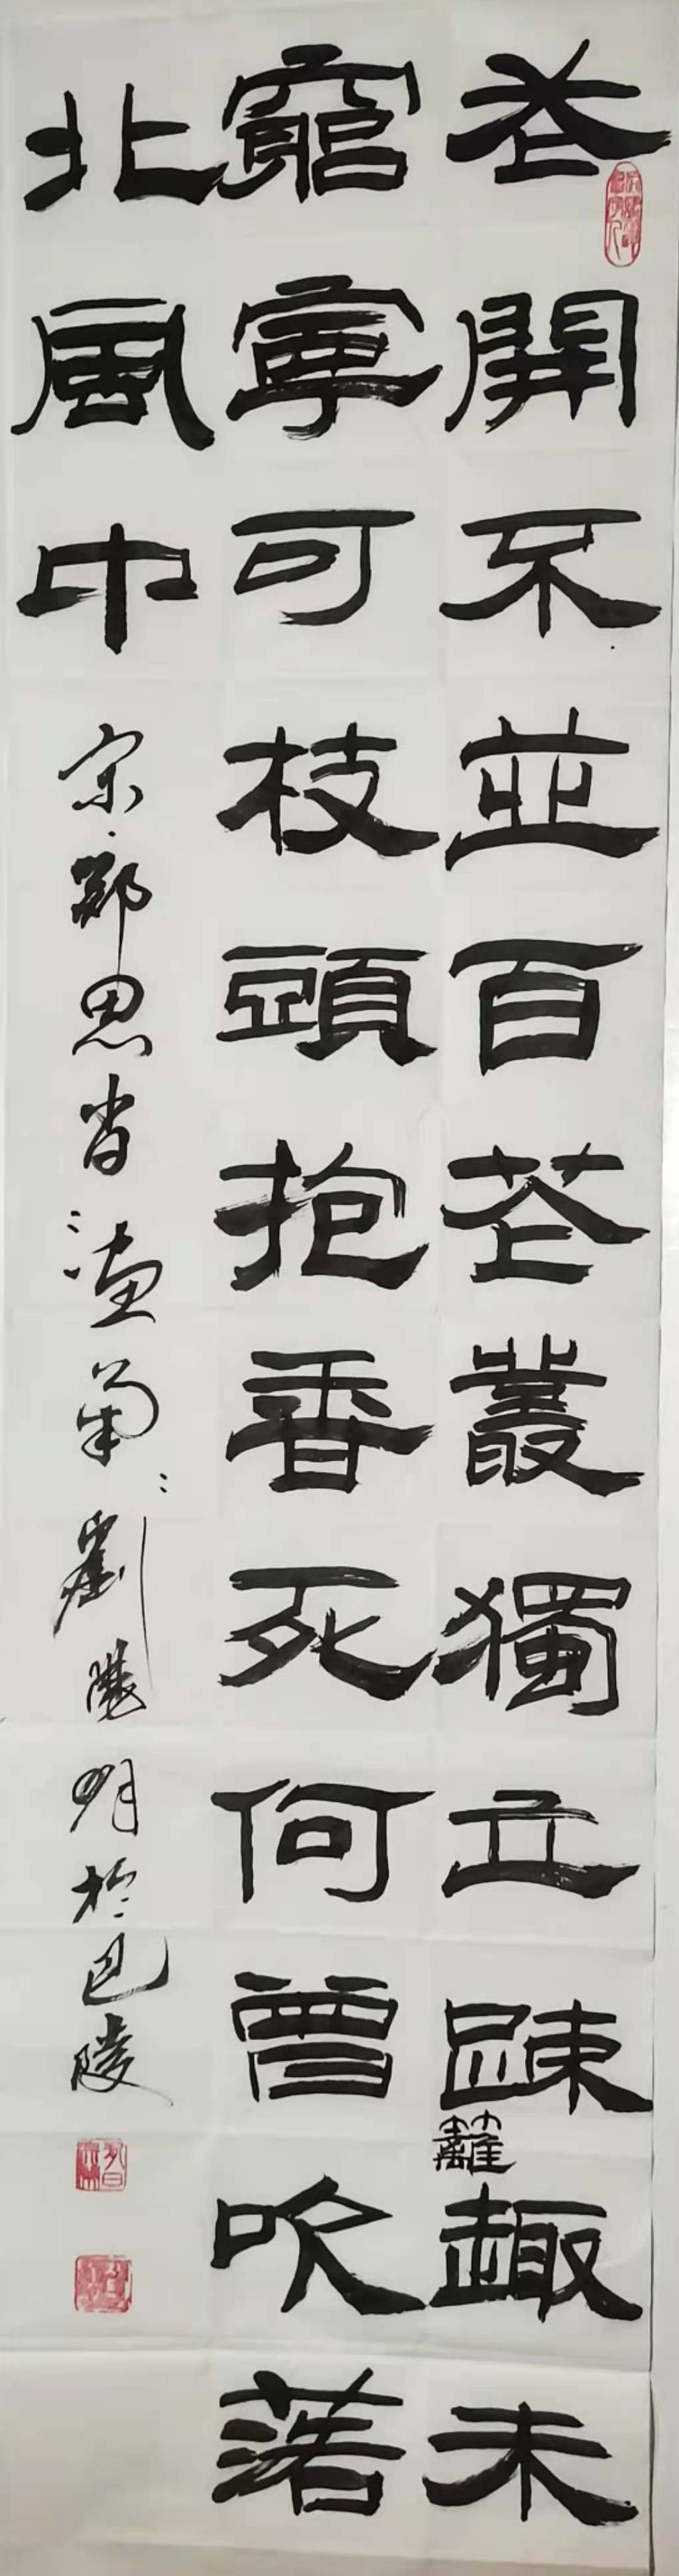 花開不並百花叢獨立疎籬趣未
窮寧可枝頭抱香死何曾吹落
北風中
宋鄭思肖畫菊劉陽明於巴陵